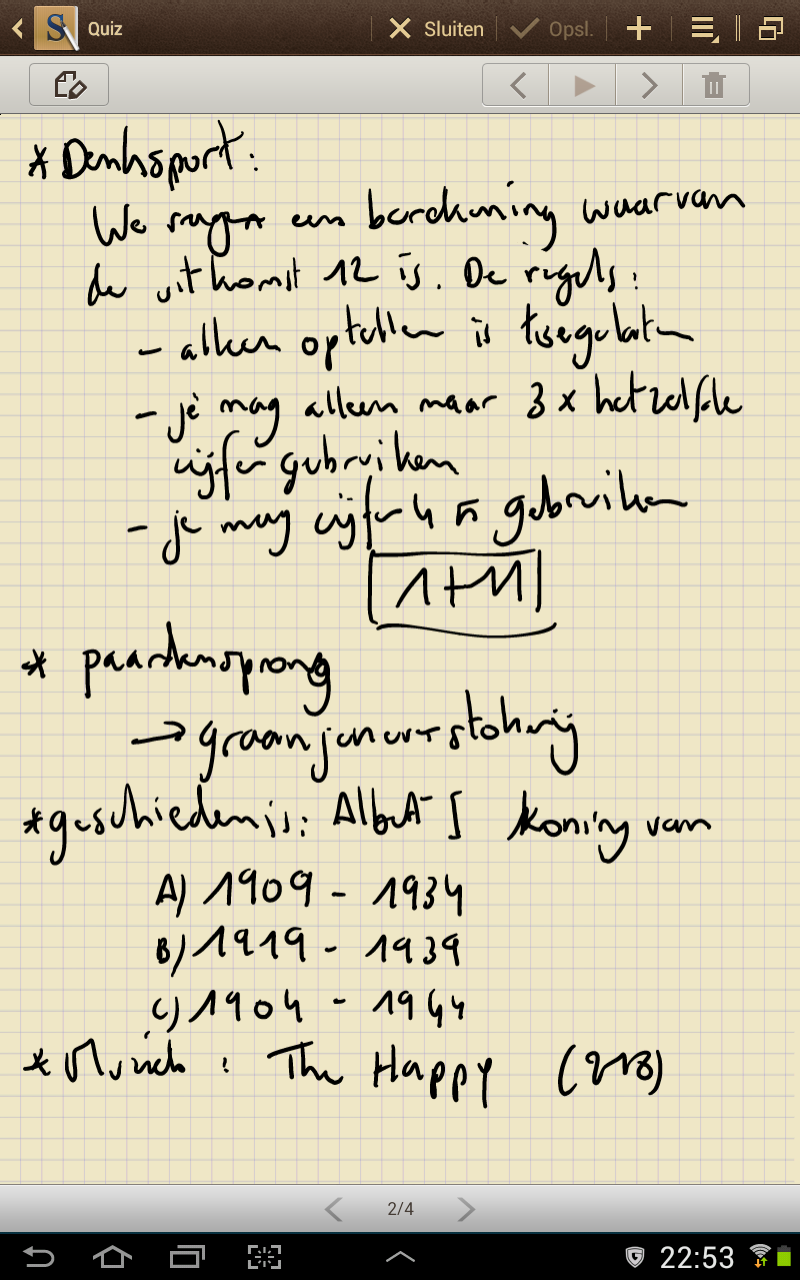 Quiz Sluiten Opsl.
* Denksport:
We vragen een berekening waarvan
de uitkomst 12 is. De regels:
- alleen optellen is toegelaten
- je mag alleen maar 3 x hetzelfde
cijfer gebruiken
- je mag cijfer 4 n gebruiken
1+11
* paardensprong
→ graanjeneverstokerij
* geschiedenis: Albert I koning van
A) 1909 - 1934
B) 1919 - 1939
C) 1904 - 1944
* Muziek : The Happy
2/4
22:53